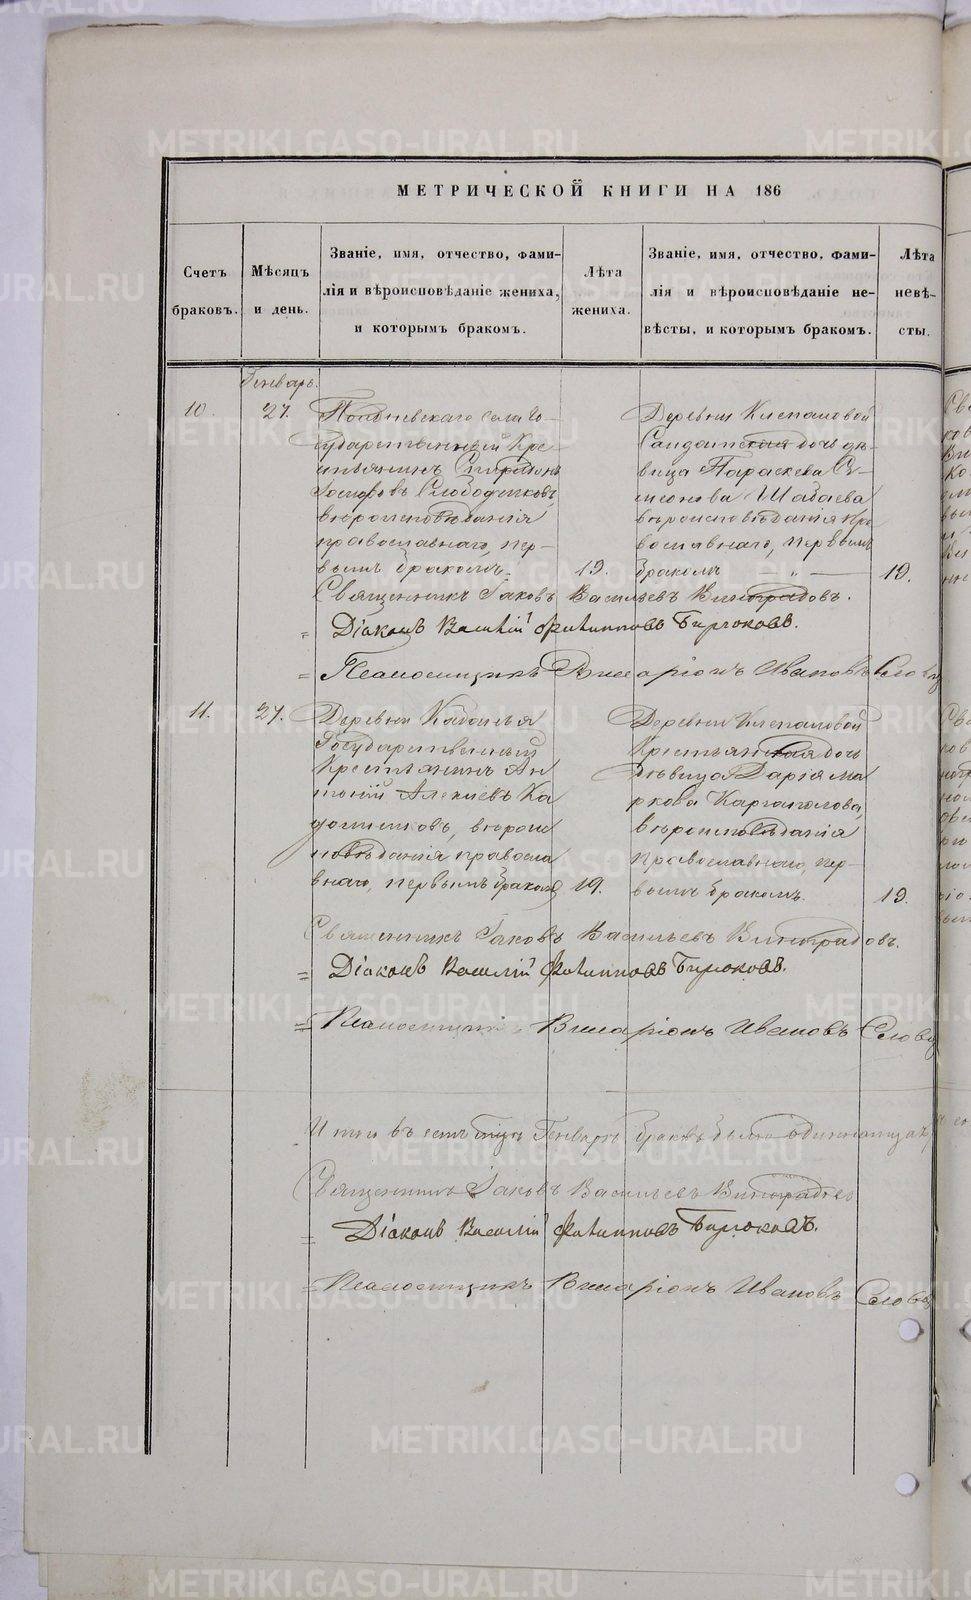 МЕТРИЧЕСКОЙ КНИГИ НА 186
Счетъ
браковъ.
Мѣсяцъ
и день.
Званіе, имя, отчество, фами-
лія и вѣроисповѣданіе жениха,
и которымъ бракомъ.
Лѣта
жениха.
Званіе, имя, отчество, фами-
лія и вѣроисповѣданіе не-
вѣсты, и которымъ бракомъ.
Лѣта
невѣ-
сты.
Генварь.
10.
27.
села Го-
сударственный Кре-
стьянинъ Спиридонъ
Слободчиковъ,
вѣроисповѣданія
православнаго, пер-
вымъ бракомъ.
19.
Деревни Клепаловой
Солдатская дочь дѣ-
вица Параскева Си-
меонова Шабаева
вѣроисповѣданія пра
вославнаго, первымъ
бракомъ " —
19.
Священникъ Іаковъ Васильевъ Виноградовъ.
= Діаконъ Василій Филипповъ Бирюковъ.
= Псаломщикъ Иларіонъ Ивановъ
11.
27.
Деревни Кабанья
Государственный
Крестьянинъ Ан
Алексіевъ Ка
вѣрои
сповѣданія правосла
внаго, первымъ бракомъ
19.
Деревни Клепаловой
Крестьянская дочь
дѣвица Дарія Ма
ркова Каргаполова,
вѣроисповѣданія
православнаго, пер-
вымъ бракомъ.
19.
Священникъ Іаковъ Васильевъ Виноградовъ.
= Діаконъ Василій Филипповъ Бирюковъ.
= Псаломщикъ Иларіонъ Ивановъ
Итого въ семъ Генварѣ браковъ было одиннадцать
Священникъ Іаковъ Васильевъ Виноградовъ
= Діаконъ Василій Филипповъ Бирюковъ.
= Псаломщикъ Иларіонъ Ивановъ
METRIKI.GASO-URAL.RU